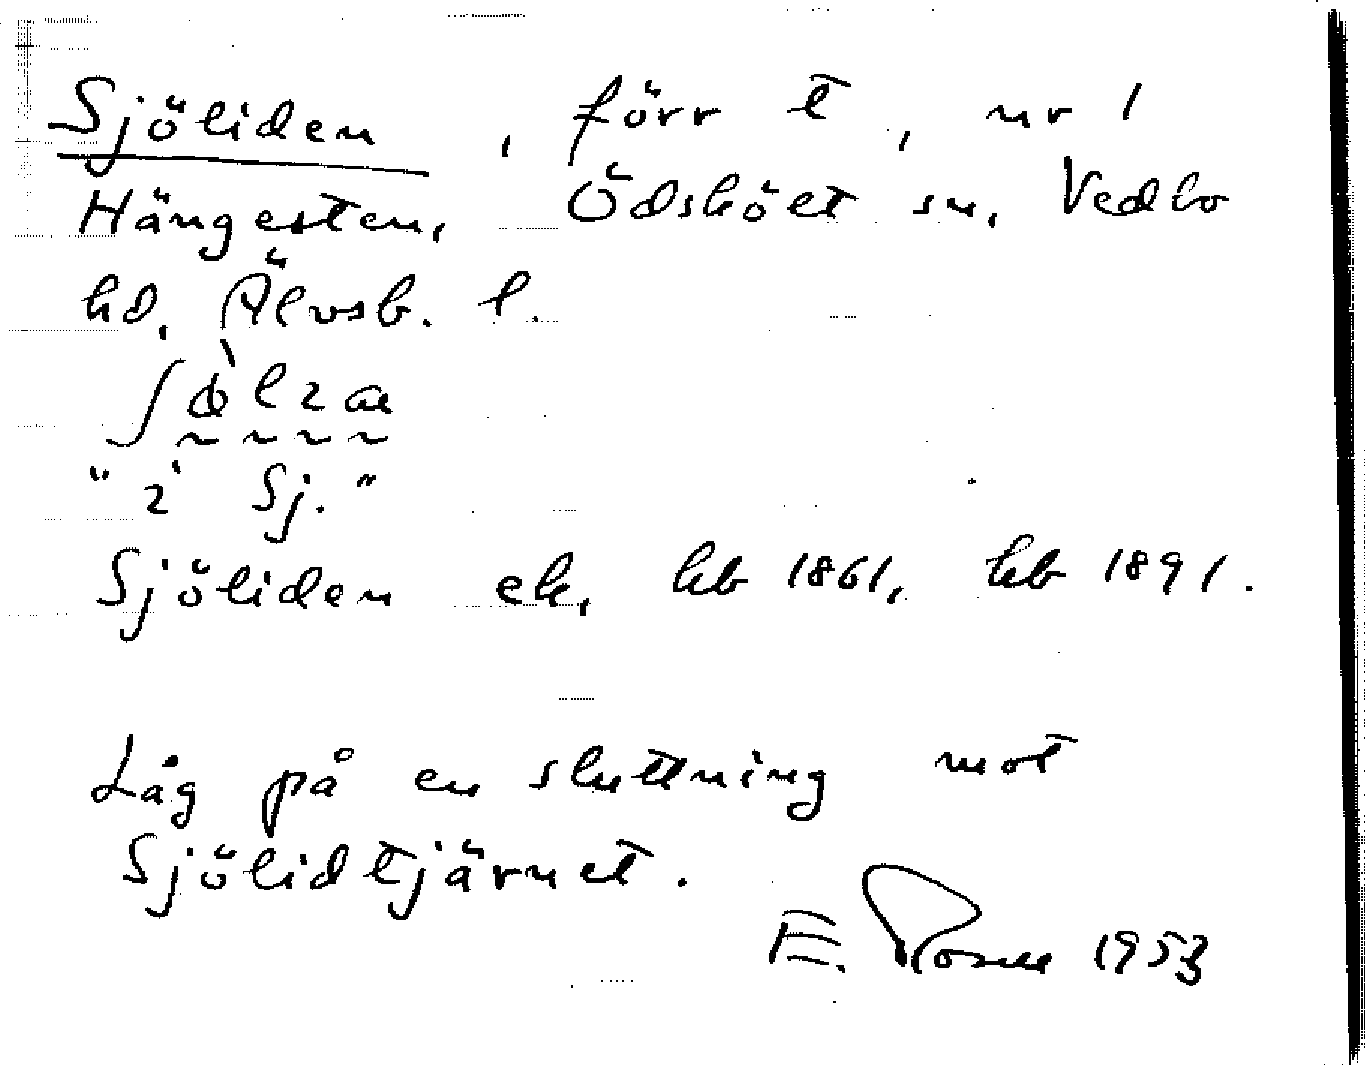 Sjöliden, förr t, nr 1
Hängesten, Ödsköet sn, Vedbo
hd, Älvsb. l.
"i Sj."
Sjöliden ek, hb 1861, hb 1891.
Låg på en sluttning mot
Sjölidtjärnet.
E. Rosell 1953